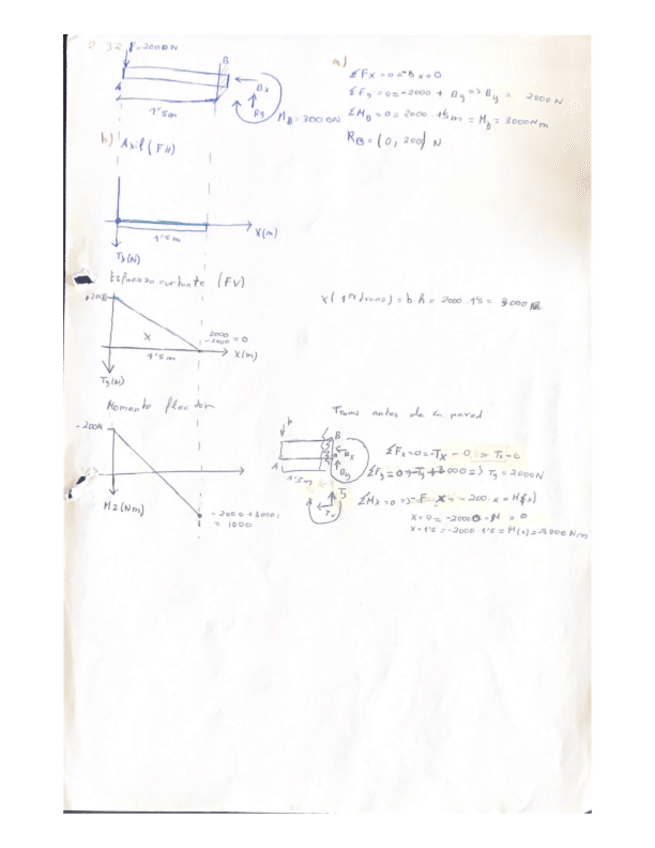 F=2000N
B
A
1'5m
Bx
By
MB=3000N
a)
ΣFx=0=-Bx=0
ΣFy=0=-2000+By => By= 2000N
ΣMB=0=2000·1'5m=MB=3000Nm
RB=(0,200) N
b) Axil (FH)
1'5m
X(m)
Ty(N)
Esfuerzo cortante (FV)
X
1'5m
2000
-2000 =0
X(m)
Ty(N)
=b·h=2000·1'5=
Momento flector
-200N
Mz(Nm)
-2000+3000=
=1000
Tramo antes de la pared
F
B
A
Bx
By
1'5m
ΣFx=0=-Tx-0 => Tx=0
ΣFy=0=-Ty+2000=> Ty=2000N
ΣMz=0
X=0=-2000·0=M=0
X=1'5=-2000·1'5=M(x)=-3000Nm